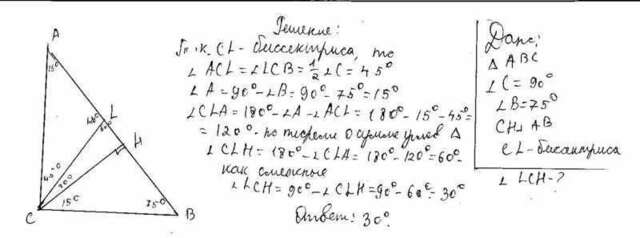 Решение:
Т.к. CL - биссектриса, то
∠ACL = ∠LCB = 1/2 ∠C = 45°
∠A = 90° - ∠B = 90° - 75° = 15°
∠CLA = 180° - ∠A - ∠ACL = 180° - 15° - 45° =
= 120° - по теореме о сумме углов Δ
∠CLH = 180° - ∠CLA = 180° - 120° = 60° -
как смежные
∠LCH = 90° - ∠CLH = 90° - 60° = 30°
Ответ: 30°.
Дано:
Δ ABC
∠C = 90°
∠B = 75°
CH⊥AB
CL - биссектриса
∠LCH - ?
A
15°
L
120°
60°
H
45°
30°
15°
75°
C
B